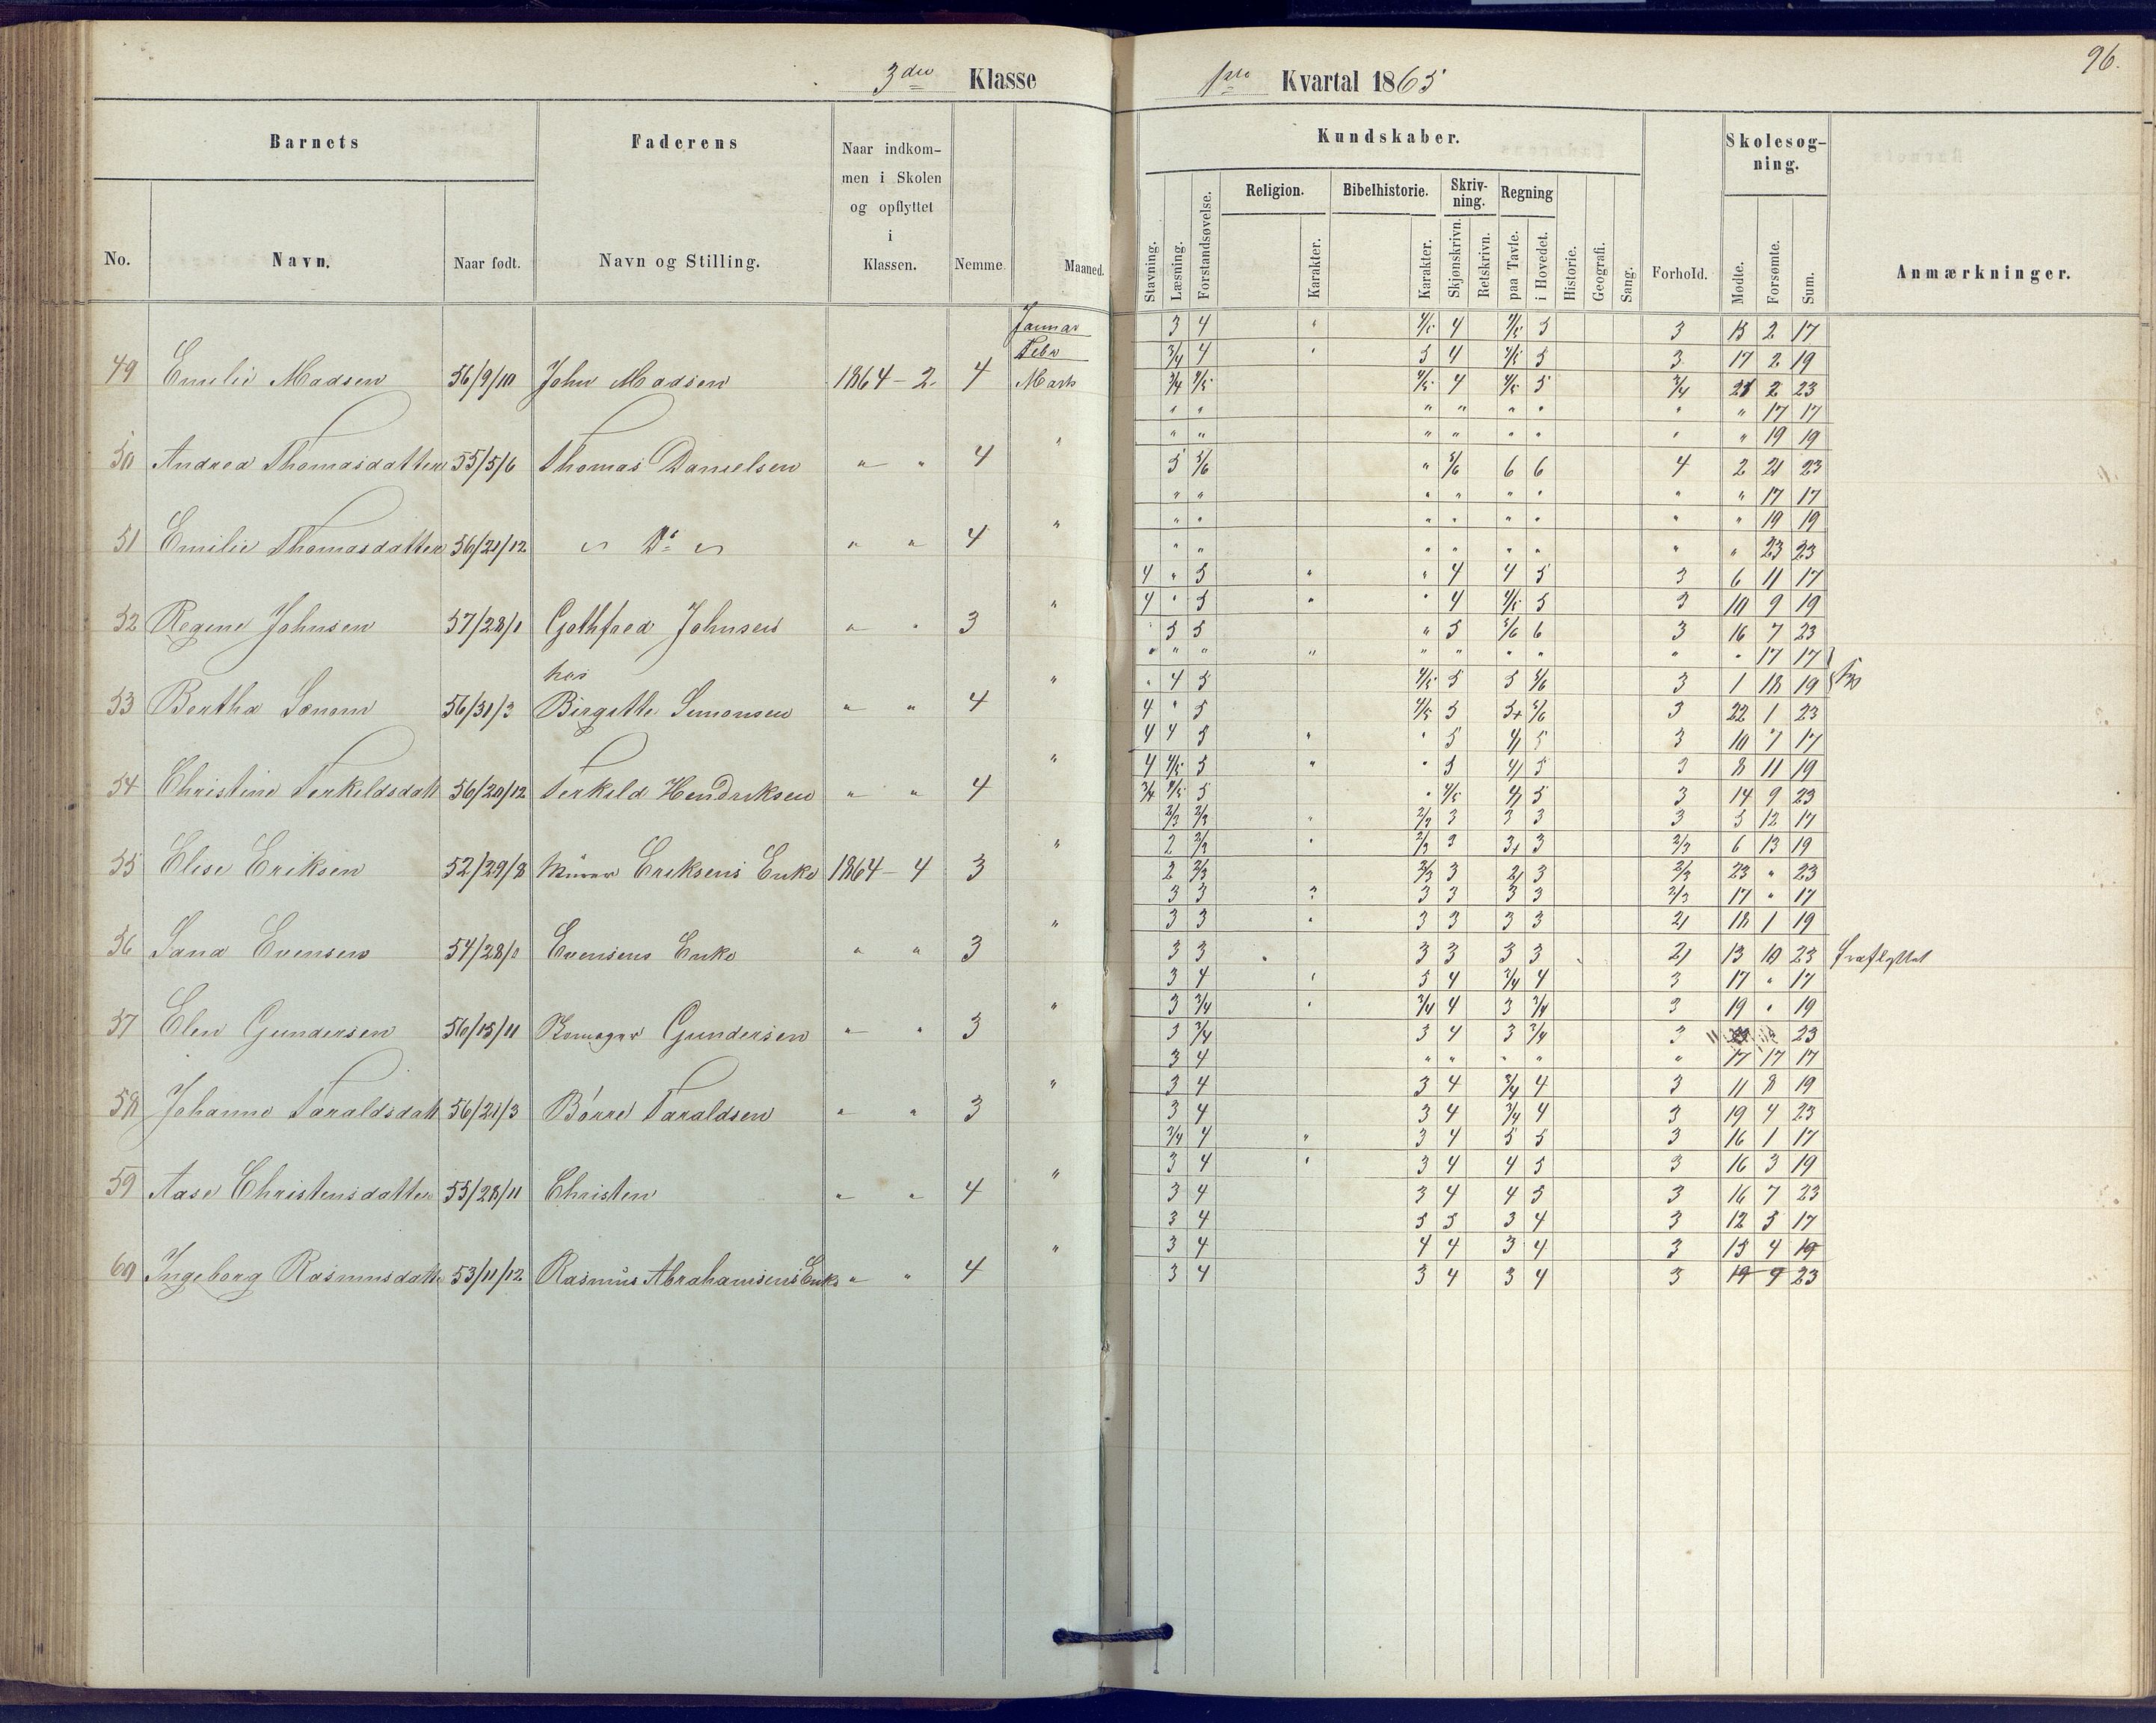 96.
3die Klasse
1ste Kvartal 1865
Barnets
Faderens
Naar indkom-
men i Skolen
og opflyttet
i
Klassen.
No.
Navn.
Naar født.
Navn og Stilling.
Nemme.
Maaned.
Kundskaber.
Stavning.
Læsning.
Forstandsøvelse.
Religion.
Karakter.
Bibelhistorie.
Karakter.
Skriv-
ning.
Skjønskrivn.
Retskrivn.
Regning
paa Tavle.
i Hovedet.
Historie.
Geografi.
Sang.
Forhold.
Skolesøg-
ning.
Mødte.
Forsømte.
Sum.
Anmærkninger.
Januar 3 4 " 4/5 4 4/5 5 3 15 2 17
Febr 3/4 4 " 5 4 4/5 5 3 17 2 19
49 Emilie Madsen 56/9/10 John Madsen 1864 - 2. 4 Marts 3/4 4/5 4/5 4 4/5 5 3/4 21 2 23
" " " " " " " " 17 17
" " " " " " " " 19 19
50 Andrea Thomasdatter 55/5/6 Thomas Danielsen " " 4 " 5 5/6 " 5/6 6 6 4 2 21 23
" " " " " " " " 17 17
" " " " " " " " 19 19
51 Emilie Thomasdatter 56/21/12 Do 4 " " " " " " " " " 23 23
4 " 5 " " 4 4 5 3 6 11 17
4 " 5 " " 4 4/5 5 3 10 9 19
52 Regine Johnsen 57/28/1 Gothfred Johnsen " " 3 " " 5 5 " 5 5/6 6 3 16 7 23
" " " " " " " " " " 17 17
" 4 5 4/5 5 5 5/6 3 1 18 19
53 Bertha 56/30/3 hos
Birgitte Simonsen " " 4 " 4 " 5 4/5 5 5+ 5/6 3 22 1 23
4 4 5 " " 5 4/ 5 3 10 7 17
4 4/5 5 " " 5 4/ 5 3 8 11 19
54 Christine Terkeldsdatt 56/20/12 Terkeld Hendriksen " " 4 " 3/4 4/5 5 " 4/5 4/ 5 3 14 9 23
2/3 2/3 " 2/3 3 3 3 3 5 12 17
2 2/3 " 2/3 3 3+ 3 2/3 6 13 19
55 Elise Eriksen 52/29/8 Murer Eriksens Enke 1864 - 4 3 " 2 2/3 2/3 3 2/ 3 2/3 23 " 23
3 3 3 3 3 3 2/3 17 " 17
3 3 " 3 3 3 3 2/ 18 1 19
56 Evensen Evensens Enke " " 3 " 3 3 3 3 3 3 2/ 13 10 23 fraflyttet
3 4 " 5 4 3/4 4 3 17 " 17
3 3/4 " 3/4 4 3 3/4 3 19 " 19
57 Elen Gundersen 56/15/11 Gundersen " " 3 " 3 3/4 3 4 3 3/4 3 11 23
3 4 " " " " " 17 17 17
3 4 3 4 3/4 4 3 11 8 19
58 Johanne Taraldsdatt 56/21/3 Børre Taraldsen " " 3 " 3 4 3 4 3/4 4 3 19 4 23
3/4 4 " 3 4 5 5 3 16 1 17
3 4 " 3 4 4 5 3 16 3 19
59 Aase Christensdatter 55/28/11 Christen " " 4 " 3 4 3 4 4 5 3 16 7 23
3 4 5 5 3 4 3 12 5 17
3 4 4 4 3 4 3 15 4 19
60 Ingeborg Rasmusdatte 53/11/12 Rasmus Abrahamsens Enke " " 4 " 3 4 3 4 3 4 3 19 9 23